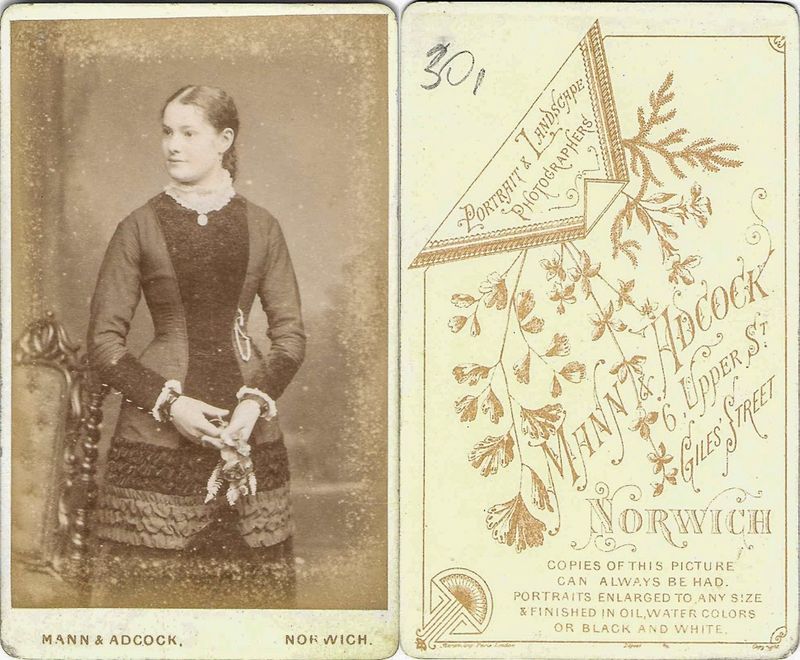 MANN & ADCOCK,
NORWICH.
30,
PORTRAIT & LANDSCAPE
PHOTOGRAPHERS
MANN & ADCOCK
6, UPPER ST
GILES' STREET
NORWICH
COPIES OF THIS PICTURE
CAN ALWAYS BE HAD.
PORTRAITS ENLARGED TO ANY SIZE
& FINISHED IN OIL, WATER COLORS
OR BLACK AND WHITE.
Paris London